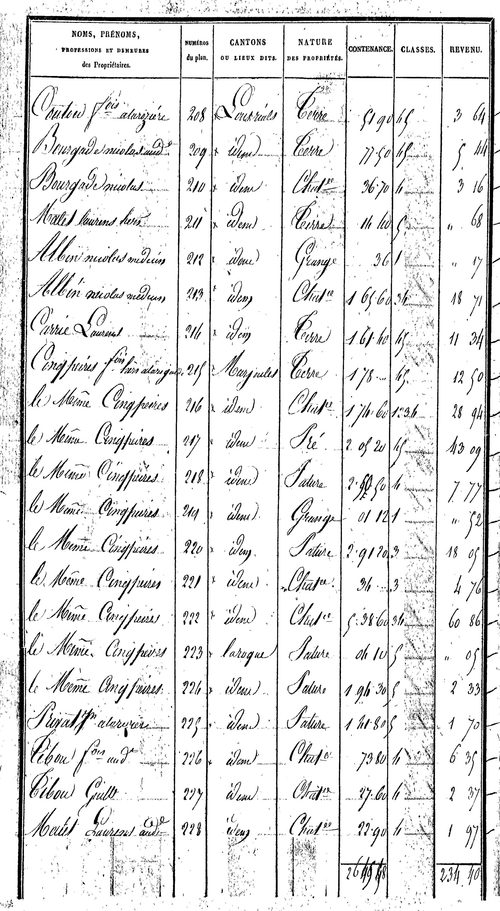 NOMS, PRÉNOMS, PROFESSIONS ET DEMEURES des Propriétaires. NUMÉROS du plan. CANTONS OU LIEUX DITS. NATURE DES PROPRIÉTÉS. CONTENANCE. CLASSES. REVENU.
fois 208 Terre 51 90 45 3 64
Bourgade nicolas 209 idem Terre 77 50 45 5 44
Bourgade nicolas 210 idem Chat 36 70 4 3 16
laurens 211 idem Terre 14 40 5 " 68
Albin nicolas medecin 212 idem Grange 36 1 " 17
Albin nicolas medecin 213 idem Chat 1 65 60 34 18 71
Carrie Laurens 214 idem Terre 1 61 40 45 11 34
Cinqpeires 215 Marqueles Terre 1 78 45 12 50
le Même Cinqpeires 216 idem Chat 1 74 60 28 94
le Même Cinqpeires 217 idem Pré 2 05 20 45 43 09
le Même Cinqpeires 218 idem Pature 2 50 4 7 77
le Même Cinqpeires 219 idem Grange 01 12 1 " 52
le Même Cinqpeires 220 idem Pature 2 91 20 3 18 05
le Même Cinqpeires 221 idem Chat 34 3 4 76
le Même Cinqpeires 222 idem Chat 5 38 60 34 60 86
le Même Cinqpeires 223 laroque Pature 06 10 5 " 05
le Même Cinqpeires 224 idem Pature 1 94 30 5 2 33
225 idem Pature 1 41 80 5 1 70
Tebou fois 226 idem Chat 73 80 4 6 35
Tebou Guill 227 idem Chat 27 60 4 2 37
Laurens 228 idem Chat 22 90 4 1 97
234 40